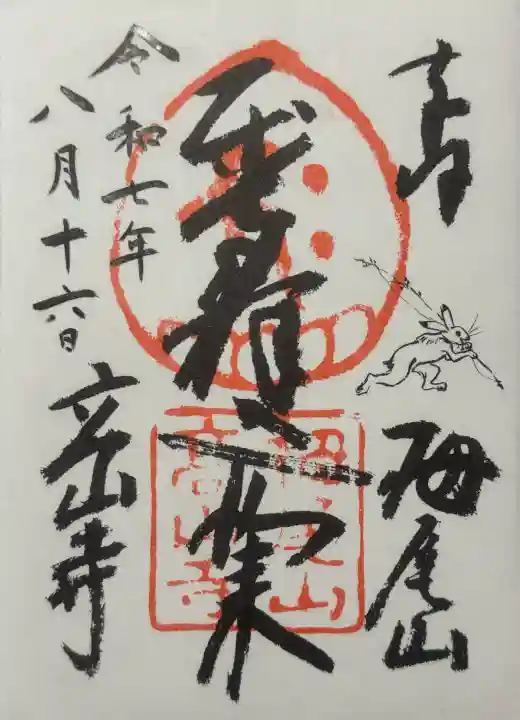 栂尾山
如来
令和七年
八月十六日
高山寺
栂尾山
高山寺